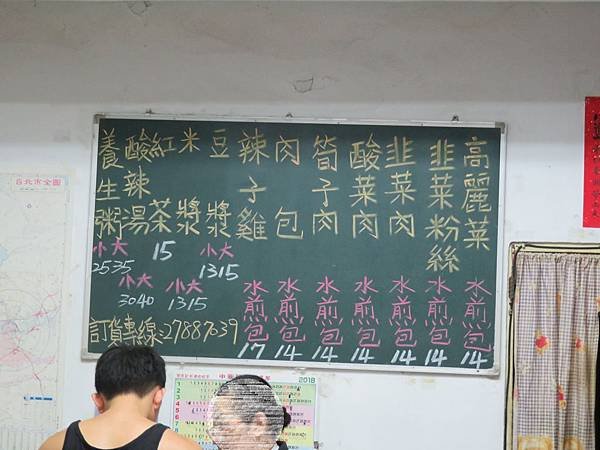 高麗菜水煎包14
韭菜粉絲水煎包14
韭菜肉水煎包14
酸菜肉水煎包14
筍子肉水煎包14
肉包水煎包14
辣子雞水煎包17
豆漿
小大
1315
米漿
小大
1315
紅茶
15
酸辣湯
小大
3040
養生粥
小大
2535
訂貨專線:27887039
台北市全圖
2018